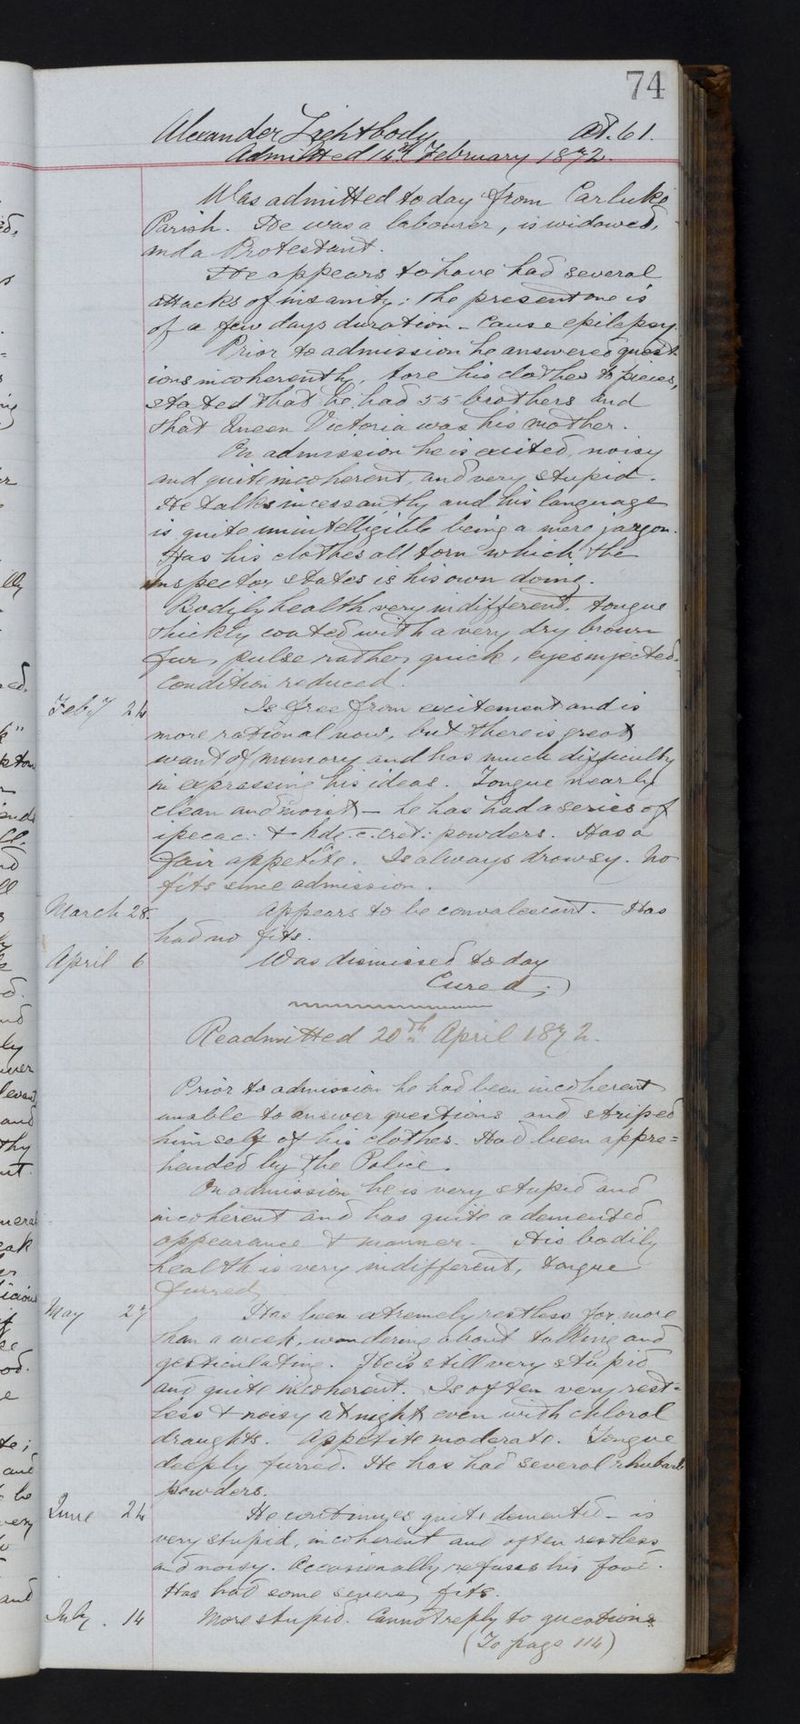 74
Alexander Lightbody aet. 61.
Admitted 14th February 1872.
Was admitted today from Carluke
Parish. He was a labourer, is widowed,
and a Protestant.
He appears to have had several
attacks of insanity: the present one is
of a few days duration - Cause epilepsy.
Prior to admission he answered quest-
ions incoherently, tore his clothes to pieces,
stated that he had 55 brothers and
that Queen Victoria was his mother.
On admission he is excited, noisy
and quite incoherent, and very stupid.
He talks incessantly and his language
is quite unintelligible being a mere jargon.
Has his clothes all torn which the
inspector states is his own doing.
Bodily health very indifferent. tongue
thickly coated with a very dry brown
fur, pulse rather quick, eyes injected.
Condition reduced.
Feby 24 Is free from excitement and is
more rational now, but there is great
want of memory and has much difficulty
in expressing his ideas. Tongue nearly
clean and moist - he has had a series of
ipecac: & hdg. c. cret: powders. Has a
fair appetite. Is always drowsy. No
fits since admission.
March 28 Appears to be convalescent. Has
had no fits.
April 6 Was dismissed today
Cured;
Readmitted 20th April 1872.
Prior to admission he had been incoherent
unable to answer questions and striped
himself of his clothes. Had been appre=
hended by the Police.
On admission he is very stupid and
incoherent and has quite a demented
appearance & manner. His bodily
health is very indifferent, tongue
furred.
May 27 Has been extremely restless for more
than a week, wandering about talking and
gesticulating. He is still very stupid
and quite incoherent. Is often very rest=
less & noisy at night even with chloral
draughts. Appetite moderate. Tongue
deeply furred. He has had several rhubarb
powders.
June 24 He continues quite demented - is
very stupid, incoherent and often restless
and noisy. Occasionally refuses his food.
Has had some severe fits.
July. 14 More stupid. Cannot reply to questions.
(To page 114)